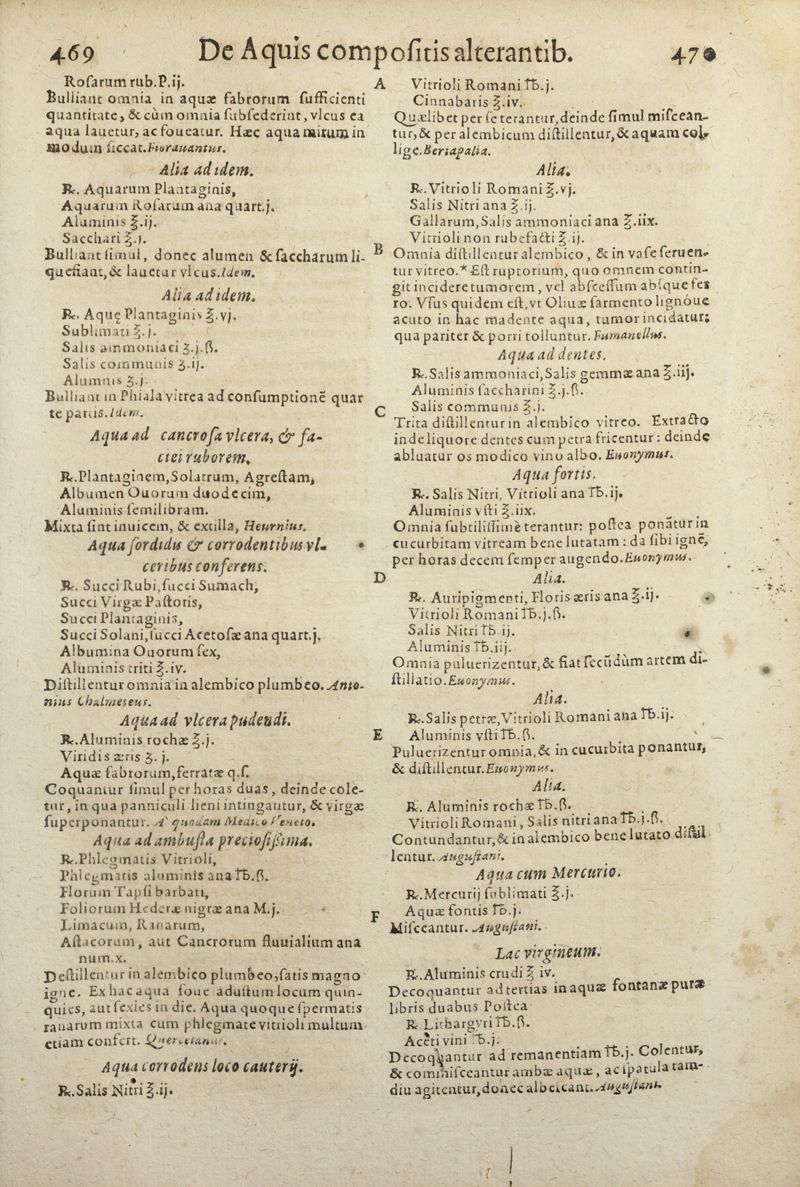 469 De Aquis compoſitis alterantib. 470
Roſarum rub.P.ij.
Bulliant omnia in aquæ fabrorum ſufficienti
quantitate, & cùm omnia ſubſederint, vlcus ea
aqua lauetur, ac foueatur. Hæc aqua mirum in
modum ſiccat. Fiorauantus.
Alia ad idem.
℞. Aquarum Plantaginis,
Aquarum Roſarum ana quart.j.
Aluminis ℥.ij.
Sacchari ℥.j.
Bulliant ſimul, donec alumen & ſaccharum li-
quefiant, & lauetur vlcus. Idem.
Alia ad idem.
℞. Aquę Plantaginis ℥.vj.
Sublimati ℥.j.
Salis ammoniaci ʒ.j.ß.
Salis communis ʒ.ij.
Aluminis ʒ.j.
Bulliant in Phiala vitrea ad conſumptionē quar
tę partis. Idem.
Aqua ad cancroſa vlcera, & fa-
ciei ruborem.
℞. Plantaginem, Solatrum, Agreſtam,
Albumen Ouorum duodecim,
Aluminis ſemilibram.
Mixta ſint inuicem, & extilla, Heurnius.
Aqua ſordidis & corrodentibus vl-
ceribus conferens.
℞. Succi Rubi, ſucci Sumach,
Succi Virgæ Paſtoris,
Succi Plantaginis,
Succi Solani, ſucci Acetoſæ ana quart.j.
Albumina Ouorum ſex,
Aluminis triti ℥.iv.
Diſtillentur omnia in alembico plumbeo. Anto-
nius Chalmeteus.
Aqua ad vlcera pudendi.
℞. Aluminis rochæ ℥.j.
Viridis æris ʒ.j.
Aquæ fabrorum, ferratæ q.ſ.
Coquantur ſimul per horas duas, deinde cole-
tur, in qua panniculi lineni intingantur, & virgæ
ſuperponantur. A' quodam Medico Veneto.
Aqua ad ambuſta precioſiſſima.
℞. Phlegmatis Vitrioli,
Phlegmatis aluminis ana ℔.ß.
Florum Tapſi barbati,
Foliorum Hederæ nigræ ana M.j.
Limacum, Ranarum,
Aſtacorum, aut Cancrorum fluuialium ana
num.x.
Deſtillentur in alembico plumbeo, ſatis magno
igne. Ex hac aqua foue aduſtum locum quin-
quies, aut ſexies in die. Aqua quoque ſpermatis
ranarum mixta cum phlegmate vitrioli multum
etiam confert. Quercetanus.
Aqua corrodens loco cauterij.
℞. Salis Nitri ℥.ij.
A Vitrioli Romani ℔.j.
Cinnabaris ℥.iv.
Quælibet per ſe terantur, deinde ſimul miſcean-
tur, & per alembicum diſtillentur, & aquam col-
lige. Bertapalia.
Alia.
℞. Vitrioli Romani ℥.vj.
Salis Nitri ana ℥.ij.
Gallarum, Salis ammoniaci ana ℥.iix.
Vitrioli non rubefacti ℥.ij.
B Omnia diſtillentur alembico, & in vaſe ſeruen-
tur vitreo. * Eſt ruptorium, quo omnem contin-
git incidere tumorem, vel abſceſſum abſque fer
ro. Vſus quidem eſt, vt Oliuæ ſarmento lignóue
acuto in hac madente aqua, tumor incidatur;
qua pariter & porri tolluntur. Fumanellus.
Aqua ad dentes.
℞. Salis ammoniaci, Salis gemmæ ana ℥.iij.
Aluminis ſaccharini ℥.j.ß.
C Salis communis ℥.j.
Trita diſtillentur in alembico vitreo. Extracto
inde liquore dentes cum petra fricentur : deinde
abluatur os modico vino albo. Euonymus.
Aqua fortis.
℞. Salis Nitri, Vitrioli ana ℔.ij.
Aluminis vſti ℥.iix.
Omnia ſubtiliſſimè terantur: poſtea ponātur in
cucurbitam vitream bene lutatam : da ſibi ignē,
per horas decem ſemper augendo. Euonymus.
D Alia.
℞. Auripigmenti, Floris æris ana ℥.ij.
Vitrioli Romani ℔.j.ß.
Salis Nitri ℔.ij.
Aluminis ℔.iij.
Omnia puluerizentur, & fiat ſecūdùm artem di-
ſtillatio. Euonymus.
Alia.
℞. Salis petræ, Vitrioli Romani ana ℔.ij.
E Aluminis vſti ℔.ß.
Puluerizentur omnia, & in cucurbita ponantur,
& diſtillentur. Euonymus.
Alia.
℞. Aluminis rochæ ℔.ß.
Vitrioli Romani, Salis nitri ana ℔.j.ß.
Contundantur, & in alembico bene lutato diſtil
lentur. Auguſtani.
Aqua cum Mercurio.
℞. Mercurij ſublimati ℥.j.
F Aquæ fontis ℔.j.
Miſceantur. Auguſtani.
Lac virgineum.
℞. Aluminis crudi ℥ iv.
Decoquantur ad tertias in aquæ fontanæ puræ
libris duabus Poſtea
℞ Lithargyri ℔.ß.
Aceti vini ℔.j.
Decoquantur ad remanentiam ℔.j. Colentur,
& commiſceantur ambæ aquæ, ac ſpatula tam-
diu agitentur, donec albeſcant. Auguſtani.